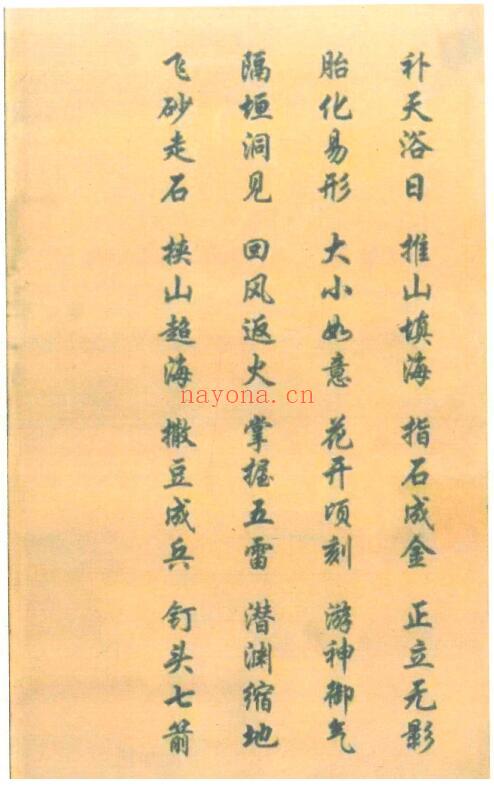 补天浴日 推山填海 指石成金 正立无影
胎化易形 大小如意 花开顷刻 游神御气
隔垣洞见 回风返火 掌握五雷 潜渊缩地
飞砂走石 挟山超海 撒豆成兵 钉头七箭
nayona.cn